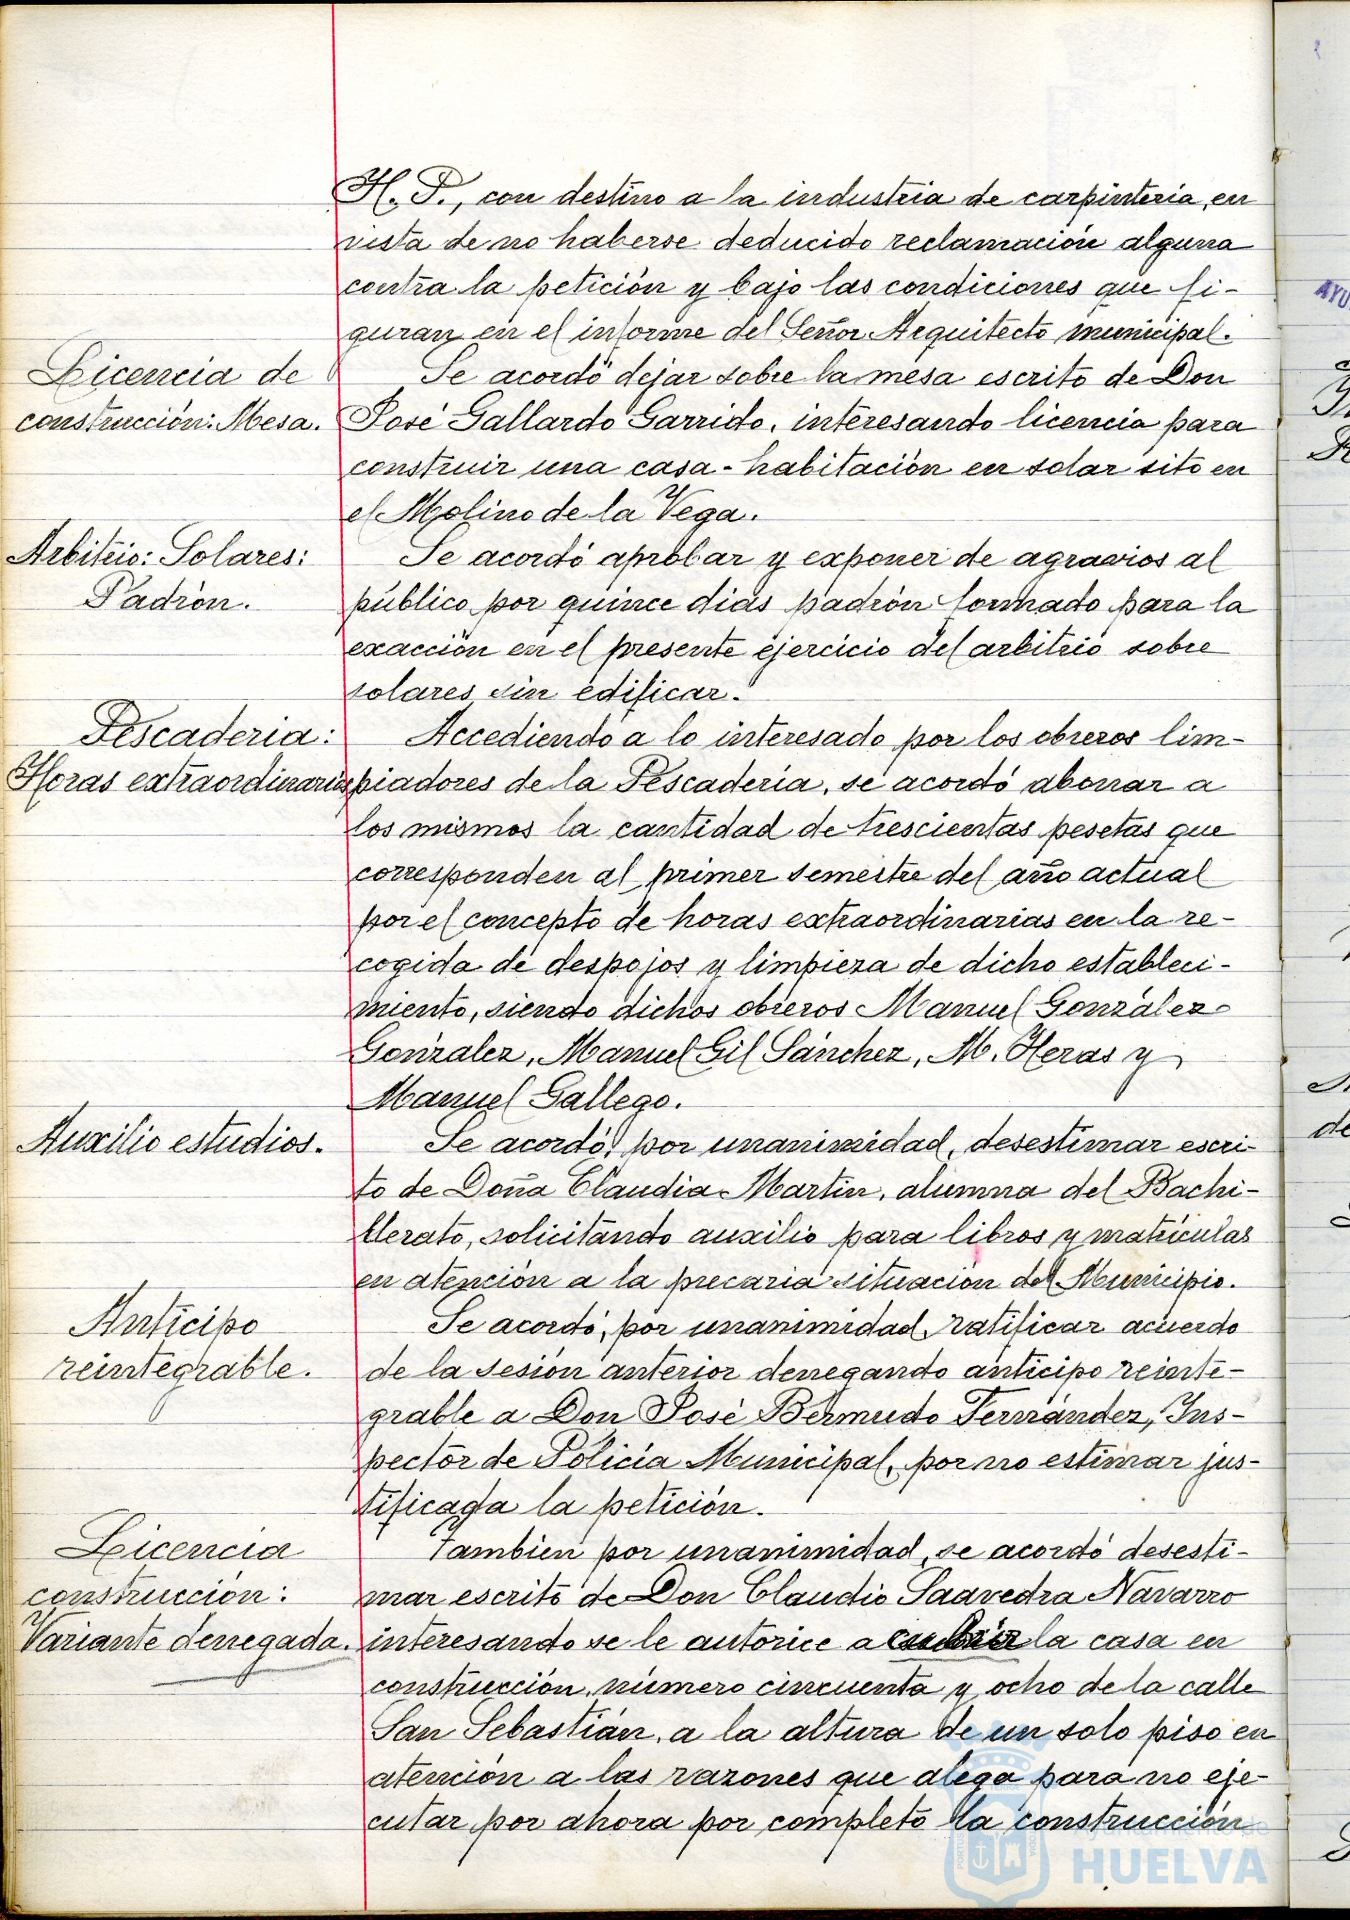 H. P., con destino a la industria de carpintería, en
vista de no haberse deducido reclamación alguna
contra la petición y bajo las condiciones que fi-
guran en el informe del Señor Arquitecto municipal.
Licencia de
construcción: Mesa.
Se acordó dejar sobre la mesa escrito de Don
José Gallardo Garrido, interesando licencia para
construir una casa-habitación en solar sito en
el Molino de la Vega.
Arbitrio: Solares:
Padrón.
Se acordó aprobar y exponer de agravios al
público por quince dias padrón formado para la
exacción en el presente ejercicio del arbitrio sobre
solares sin edificar.
Pescaderia:
Horas extraordinarias
Accediendo a lo interesado por los obreros lim-
piadores de la Pescaderia, se acordó abonar a
los mismos la cantidad de trescientas pesetas que
corresponden al primer semestre del año actual
por el concepto de horas extraordinarias en la re-
cogida de despojos y limpieza de dicho estableci-
miento, siendo dichos obreros Manuel González
González, Manuel Gil Sánchez, M. Heras y
Manuel Gallego.
Auxilio estudios.
Se acordó, por unanimidad, desestimar escri-
to de Doña Claudia Martin, alumna del Bachi-
llerato, solicitando auxilio para libros y matrículas
en atención a la precaria situación del Municipio.
Anticipo
reintegrable.
Se acordó, por unanimidad, ratificar acuerdo
de la sesión anterior denegando anticipo reinte-
grable a Don José Bermudo Fernández, Ins-
pector de Policía Municipal, por no estimar jus-
tificada la petición.
Licencia
construcción:
Variante denegada.
Tambien por unanimidad, se acordó desesti-
mar escrito de Don Claudio Saavedra Navarro
interesando se le autorice a cubrir la casa en
construcción, número cincuenta y ocho de la calle
San Sebastián, a la altura de un solo piso en
atención a las razones que alega para no eje-
cutar por ahora por completo la construcción
Ayuntamiento de
HUELVA